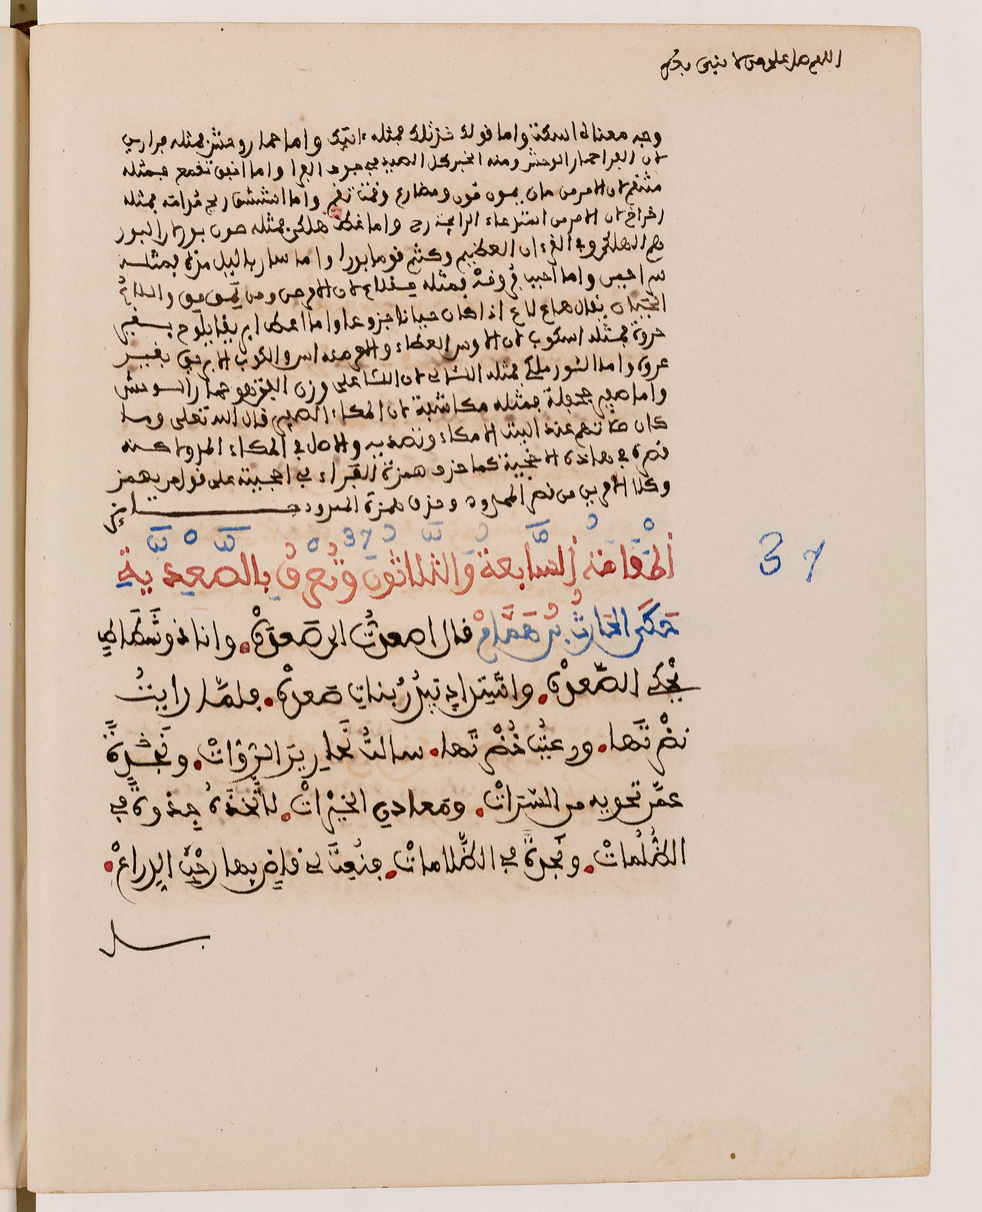 اللهم صل على من لا نبي بعده
وجه معناه اسكت واما قولك خذ تلك فمثله هاتيك واما حمار وحش فمثله فرا زين
لان الفرا حمار الوحش ومنه الخبر كل الصيد في جوف الفرا واما انفق تقمع فمثله
منتقم لان الامر من مان يمون مون ومضارع وقمت تقم واما استنش ريح مدامة فمثله
رح راح لان الامر من استدعاء الرايحة رح واما غط هلكى فمثله صن بور لان البور
هم الهلكى وفي القرءان العظيم وكنتم قوما بورا واما سار بالليل مدة فمثله
سراحين واما احبب فروقة فمثله مقلاع لان الامر من ومق يمق مق واللاع
الجبان يقال هاع لاع اذا كان جبانا جزوعا واما اعط ابريقا يلوح بغير
عروة فمثله اسكوب لان الاوس العطاء والامر منه اس والكوب الابريق بغير
عروة واما الثور ملكي فمثله اللئالي لان اللئا على وزن القفا هو حمار الوحش
واما صفير جحفلة فمثله مكاشفة لان المكاء الصفير قال الله تعلى وما
كان صلاتهم عند البيت الا مكاء وتصدية والاصل في المكاء المد ولاكنه
قصره في هاذه الاحجية كما حذف همزة الفراء في احجيته على قول من يهمز
وكلا الامرين من قصر الممدود وحذف همزة المهموز جائز
المقامة السابعة والثلاثون وتعرف بالصعيدية
37
37
حكى الحارث بن همام قال اصعدت الى صعدة. وانا ذو شطاط
يحكي الصعدة. واشتداد يبدر بنات صعدة. فلما رايت
نضرتها. ورعيت خضرتها. سالت نحارير الرواة. 
عمن تحويه من السراة. ومعادن الخيرات. لاتخذه جذوة في
الظلمات. ونجدة في الظلامات. فنعت لي قاض بها رحيب الباع.